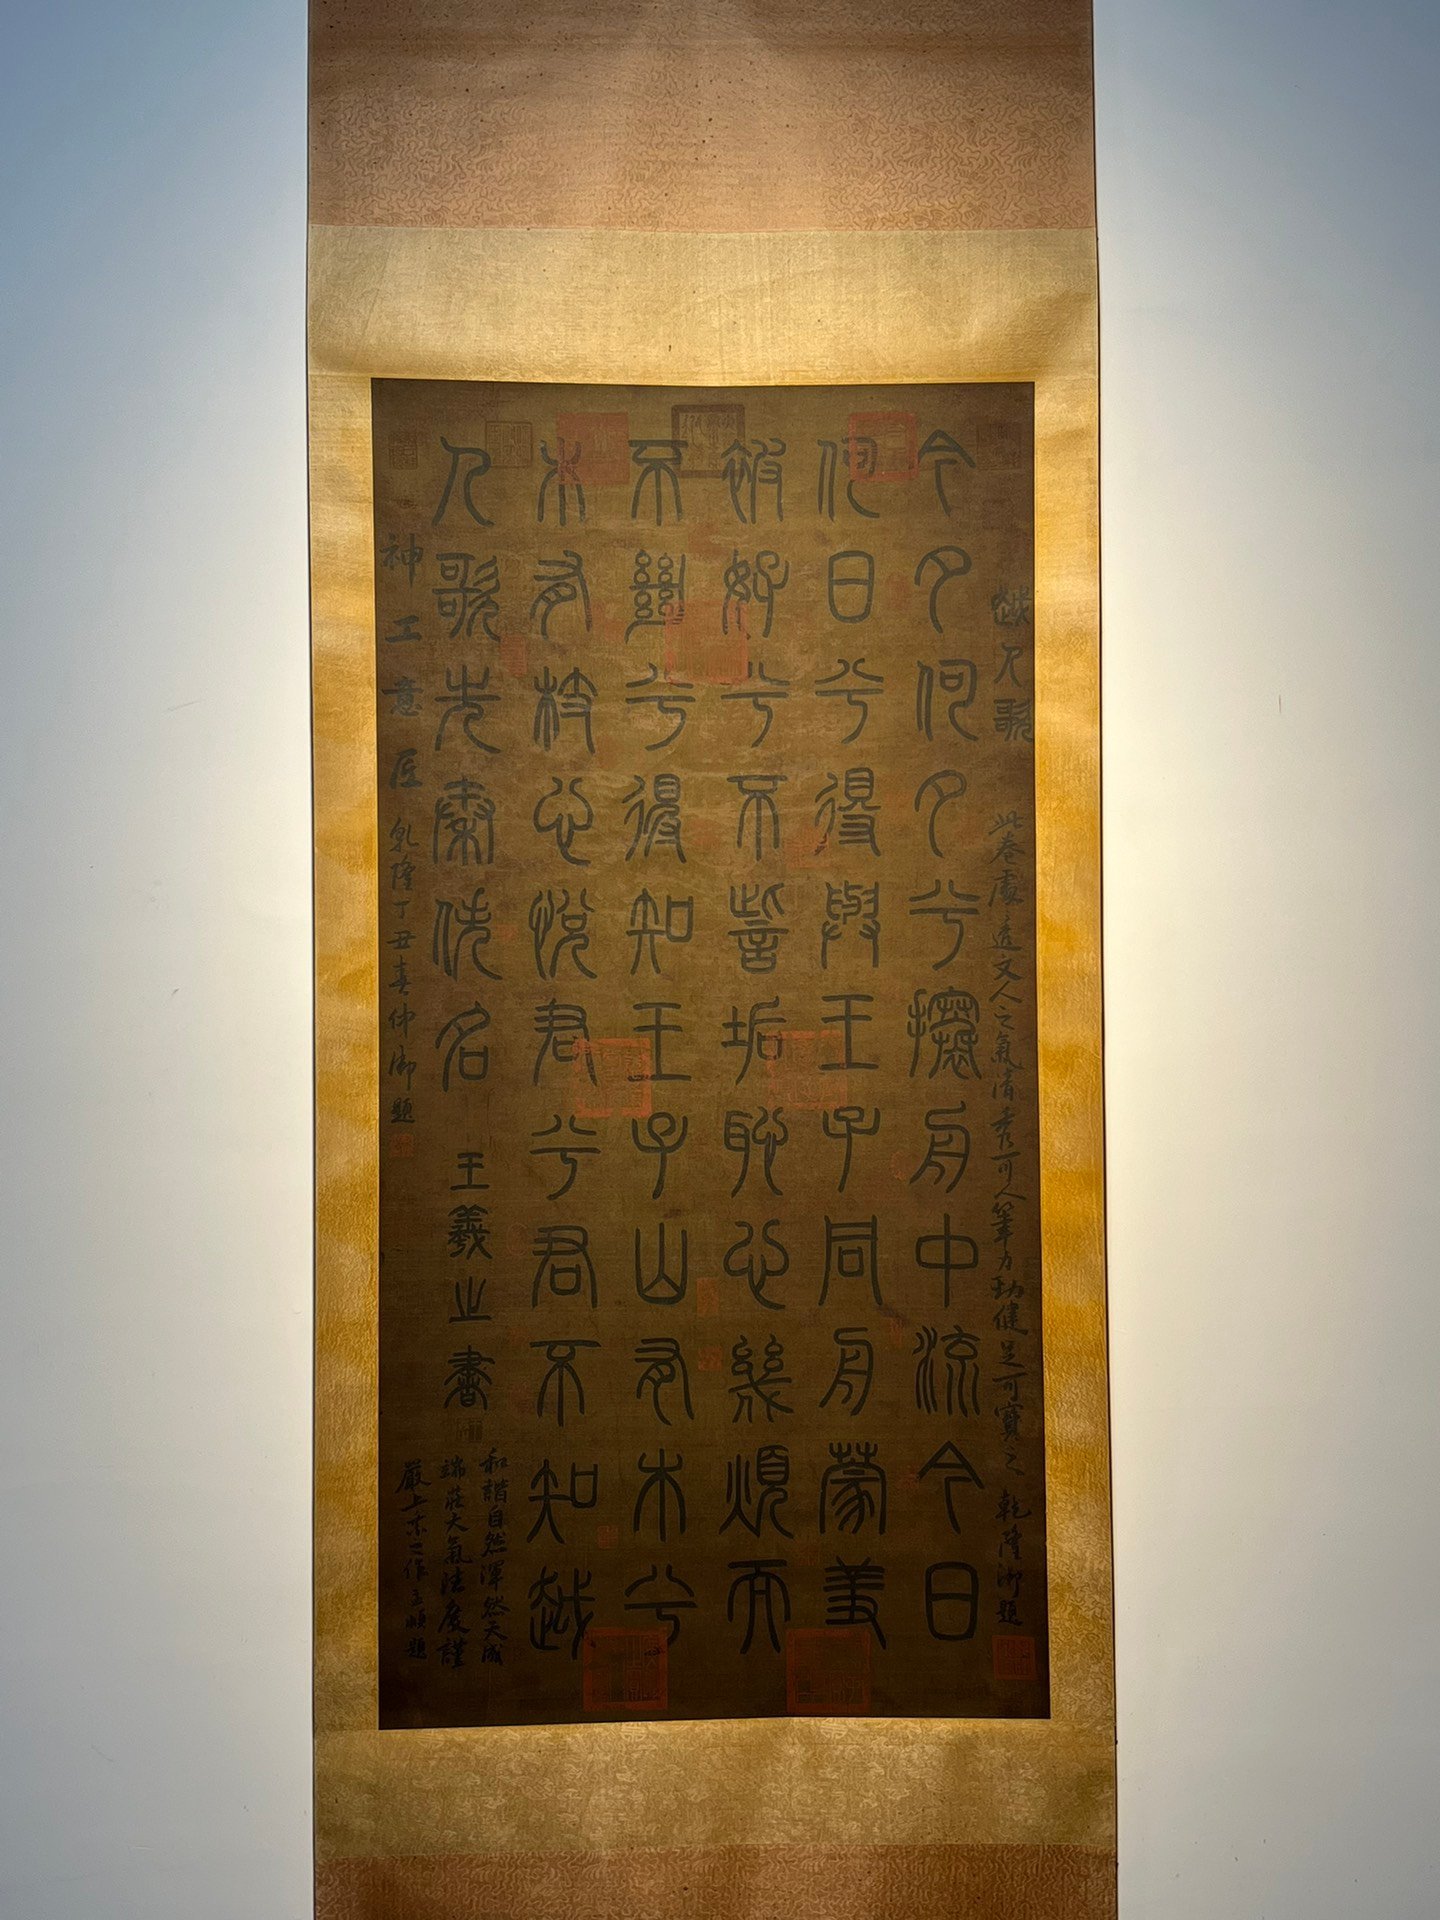 越人歌 此卷處文人之氣清秀可人筆力勁健足可寶之 乾隆御題
今夕何夕兮攓舟中流今日
何日兮得與王子同舟蒙羞
被好兮不訾垢恥心幾煩而
不絕兮得知王子山有木兮
木有枝心悅君兮君不知越
人歌先秦佚名
王羲之書
和諧自然渾然天成
端莊大氣法度謹
嚴上乘之作孟頫題
神工意匠 乾隆丁丑春仲御題